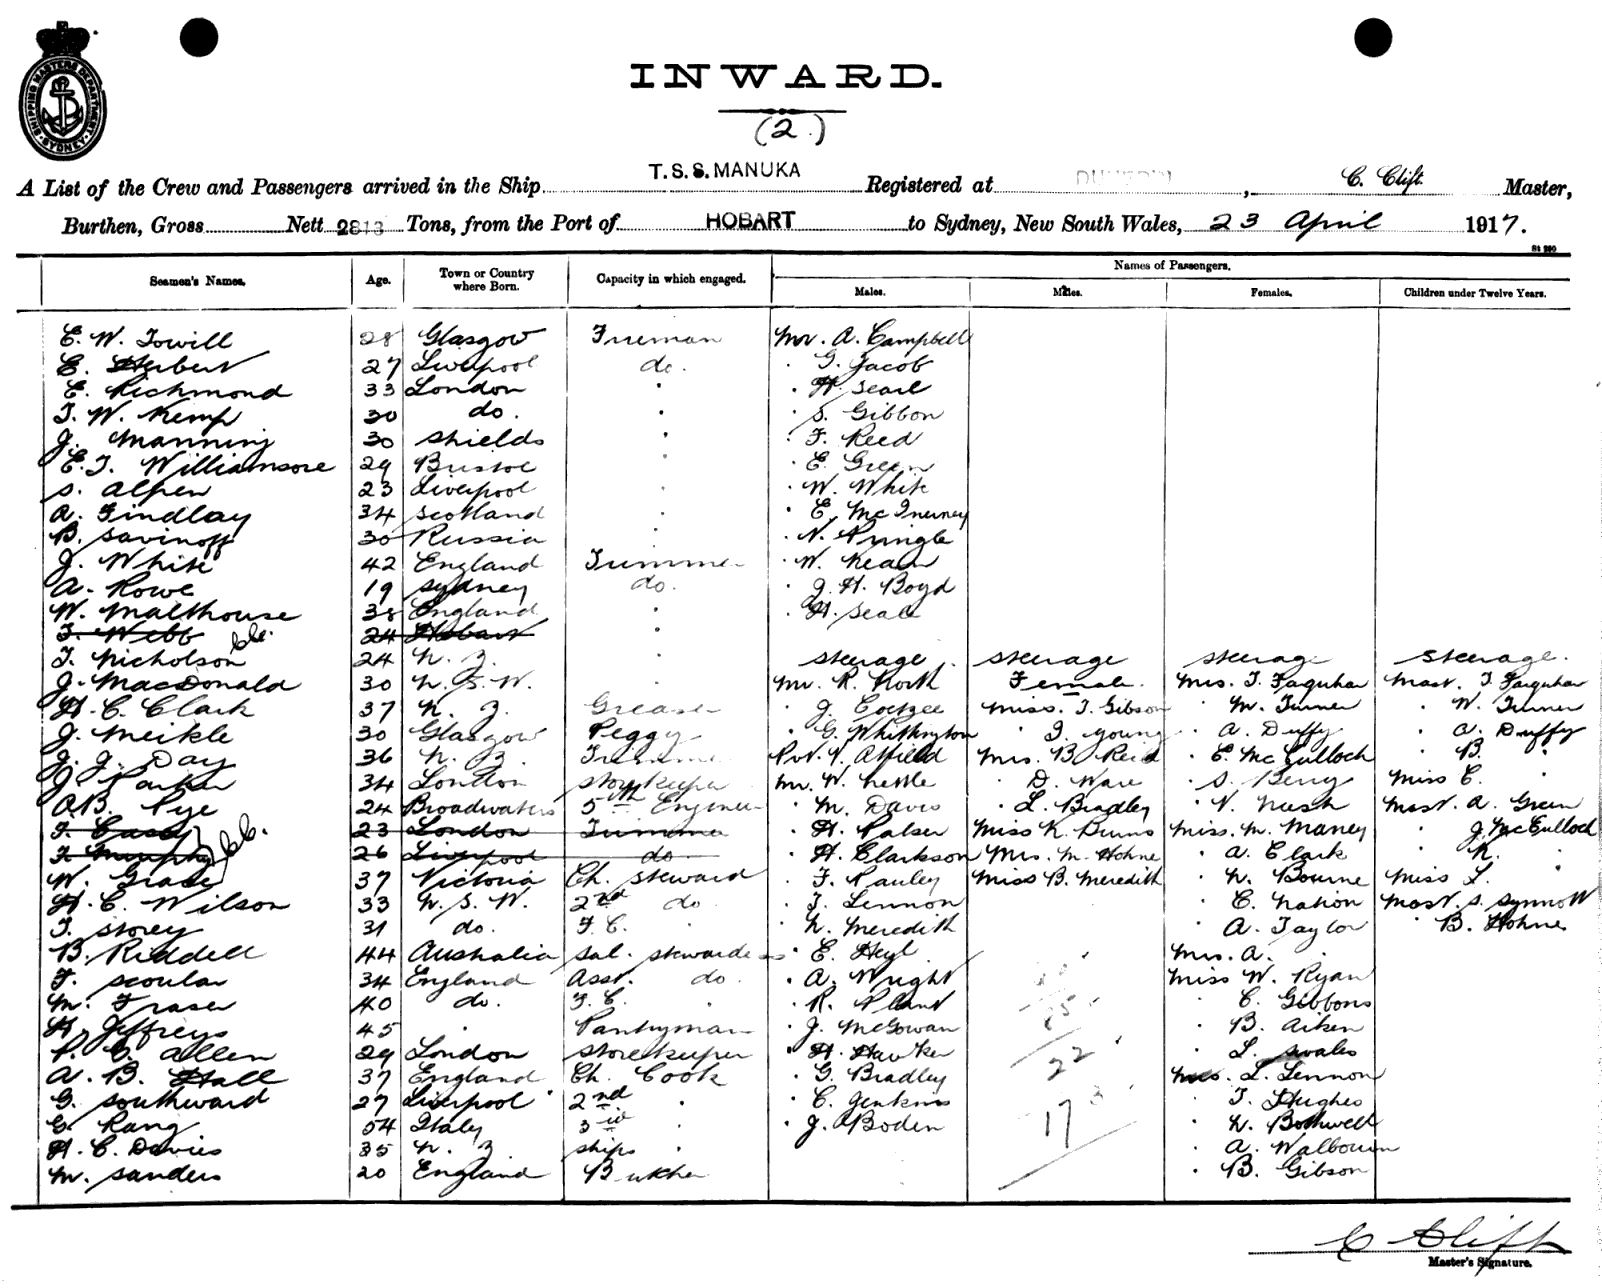 SHIPPING MASTERS DEPARTMENT SYDNEY
INWARD.
(2.)
A List of the Crew and Passengers arrived in the Ship T.S.S. MANUKA Registered at DUNEDIN, C. Clift. Master,
Burthen, Gross Nett 2813 Tons, from the Port of HOBART to Sydney, New South Wales, 23 April 1917.
Names of Passengers.
Seamen's Names. Age. Town or Country where Born. Capacity in which engaged. Males. Males. Females. Children under Twelve Years.
E. W. Towill 28 Glasgow Fireman Mr. A. Campbell
E. Herbert 27 Liverpool do. " G. Jacob
E. Richmond 33 London " " H. Searl
T. W. Kemp 30 do. " " S. Gibbon
J. Manning 30 Shields " " F. Reed
E. T. Williamson 29 Bristol " " E. Green
S. Alpen 23 Liverpool " " W. White
A. Findlay 34 Scotland " " E. McInerney
B. Savinoff 30 Russia " " N. Pringle
J. White 42 England Trimmer " W. Kean
A. Rowe 19 Sydney do. " J. H. Boyd
W. Malthouse 38 England " " H. Seale
T. Webb 24 Hobart "
T. Nicholson 24 N. Z. " Steerage. Steerage Steerage Steerage.
J. MacDonald 30 N. S. W. " Mr. R. North Female. Mrs. T. Faquhar Mast. T. Farquhar
H. C. Clark 37 N. Z. Greaser " J. Coetzee Miss. T. Gibson " M. Turner " W. Turner
J. Meikle 30 Glasgow Peggy " G. Whithington " J. Young " A. Duffy " A. Duffy
J. J. Day 36 N. Z. Trimmer Pvt. V. Atfield Mrs. B. Reid " E. McCulloch " B. "
J. Parker 34 London Storekeeper Mr. W. Nettle " D. Ware " S. Berry Miss E. "
A. B. Pye 24 Broadwaters 5th Engineer " M. Davis " L. Bradley " V. Nash Mast. A. Green
T. Casey 23 London Trimmer " H. Palser Miss K. Burns Miss. M. Maney " J. McCulloch
T. Murphy 26 Liverpool do " H. Clarkson Mrs. M. Hohne " A. Clark " R. "
W. Grase 37 Victoria Ch. Steward " F. Pauley Miss B. Meredith " N. Bourne Miss L. "
H. C. Wilson 33 N. S. W. 2nd do " T. Lennon " E. Nation Mast. S. Synnott
T. Storey 31 do. F. C. " " N. Meredith " A. Taylor " B. Hohne
B. Riddell 44 Australia Sal. Stewardess " E. Heyl Mrs. A. "
F. Scoular 34 England Asst. do " A. Wright Miss W. Ryan
M. Fraser 40 do. F. C. " " R. Plant " C. Gibbons
H. Jeffreys 45 " Pantryman " J. McGowan " B. Aiken
P. C. Allen 29 London Storekeeper " H. Hawker 22 " L. Swales
A. B. Hall 37 England Ch. Cook " G. Bradley Mrs. L. Lennon
G. Southward 27 Liverpool 2nd " " C. Jenkins " T. Hughes
G. Rang 54 Italy 3rd " " J. Boden 17 " N. Bothwell
H. C. Davies 35 N. Z. Ships " " A. Walbourn
M. Sanders 20 England Butcher " B. Gibson
C Clift
Master's Signature.